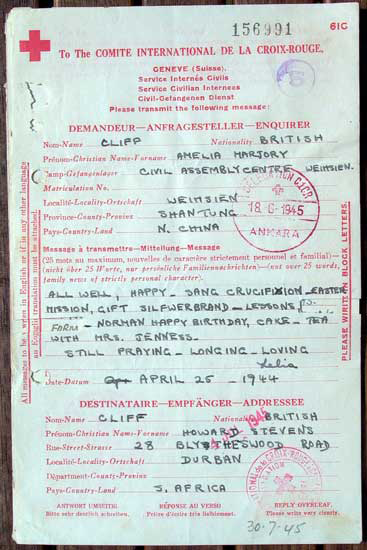 156991
61C
To The COMITE INTERNATIONAL DE LA CROIX-ROUGE,
GENEVE (Suisse).
Service Internés Civils
Service Civilian Internees
Civil-Gefangenen Dienst
Please transmit the following message:
DEMANDEUR—ANFRAGESTELLER—ENQUIRER
Nom-Name CLIFF Nationality BRITISH
Prénom-Christian Name-Vorname AMELIA MARJORY
Camp-Gefangenlager CIVIL ASSEMBLY CENTRE WEIHSIEN.
Matriculation No.
Localité-Locality-Ortschaft WEIHSIEN
Province-County-Provinz SHANTUNG
Pays-Country-Land N. CHINA
DELEGATION C.I.C.R.
18.6.1945
ANKARA
Message à transmettre-Mitteilung-Message
(25 mots au maximum, nouvelles de caractère strictement personnel et familial)—
(nicht über 25 Worte, nur persönliche Familiennachrichten)—(not over 25 words,
family news of strictly personal character).
ALL WELL, HAPPY - SANG CRUCIFIXION - EASTER
MISSION, GIFT SILFWERBRAND - LESSONS,
FORM - NORMAN HAPPY BIRTHDAY, CAKE - TEA
WITH MRS. JENNESS.
STILL PRAYING - LONGING - LOVING
Lelia
Date-Datum APRIL 25 - 1944
DESTINATAIRE—EMPFÄNGER—ADDRESSEE
Nom-Name CLIFF Nationality BRITISH
1945
Prénom-Christian Name-Vorname HOWARD STEVENS
Rue-Street-Strasse 28 BLYTHESWOOD ROAD
Localité-Locality-Ortschaft DURBAN
Départment-County-Provinz
Pays-Country-Land S. AFRICA
ANTWORT UMSEITIG
Bitte sehr deutlich schreiben.
RÉPONSE AU VERSO
Prière d'écrire très lisiblement.
REPLY OVERLEAF.
Please write very clearly.
30-7-45
All messages to be written in English or if in any other language
an English translation must be attached.
PLEASE WRITE IN BLOCK LETTERS.